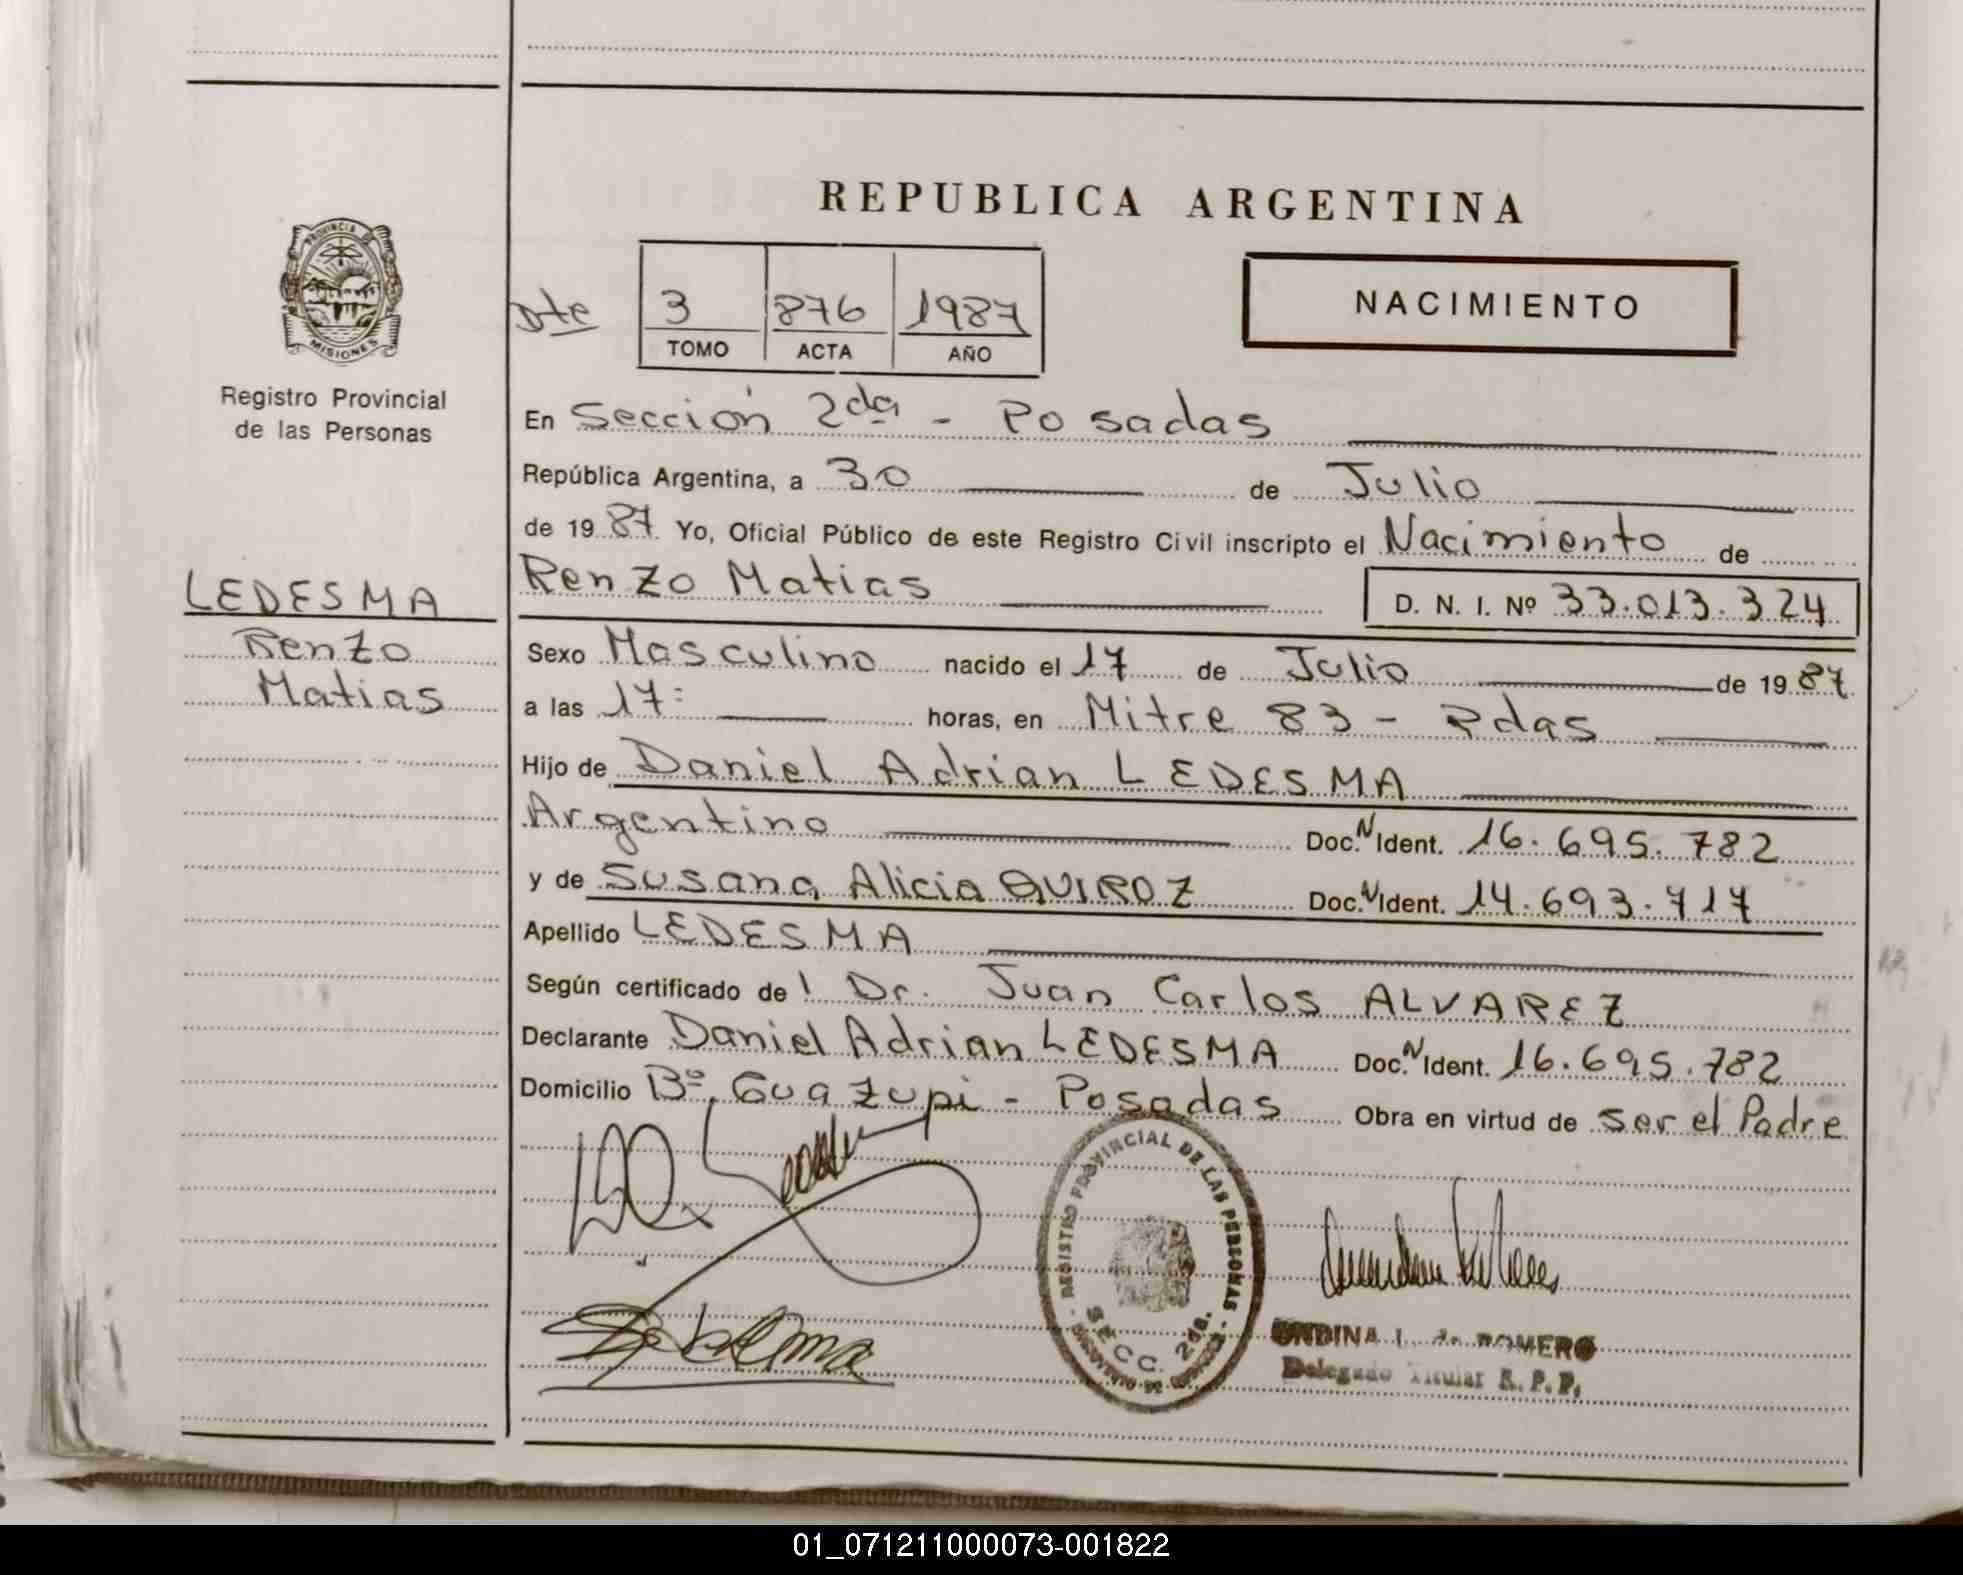 REPUBLICA ARGENTINA
PROVINCIA DE
MISIONES
Registro Provincial
de las Personas
Dte
3 876 1987
TOMO ACTA AÑO
NACIMIENTO
En Sección 2da - Posadas
República Argentina, a 30 de Julio
de 1987 Yo, Oficial Público de este Registro Civil inscripto el Nacimiento de
Renzo Matias D. N. I. Nº 33.013.324
LEDESMA
Renzo
Matias
Sexo Masculino nacido el 17 de Julio de 1987
a las 17: horas, en Mitre 83 - Pdas
Hijo de Daniel Adrian LEDESMA
Argentino Doc.N Ident. 16.695.782
y de Susana Alicia QUIROZ Doc.N Ident. 14.693.717
Apellido LEDESMA
Según certificado de l Dr. Juan Carlos ALVAREZ
Declarante Daniel Adrian LEDESMA Doc.N Ident. 16.695.782
Domicilio Bº Guazupi - Posadas Obra en virtud de ser el Padre
REGISTRO PROVINCIAL DE LAS PERSONAS
SECC. 2da.
Ledesma
ONDINA I. de ROMERO
Delegado Titular R. P. P.
01_071211000073-001822